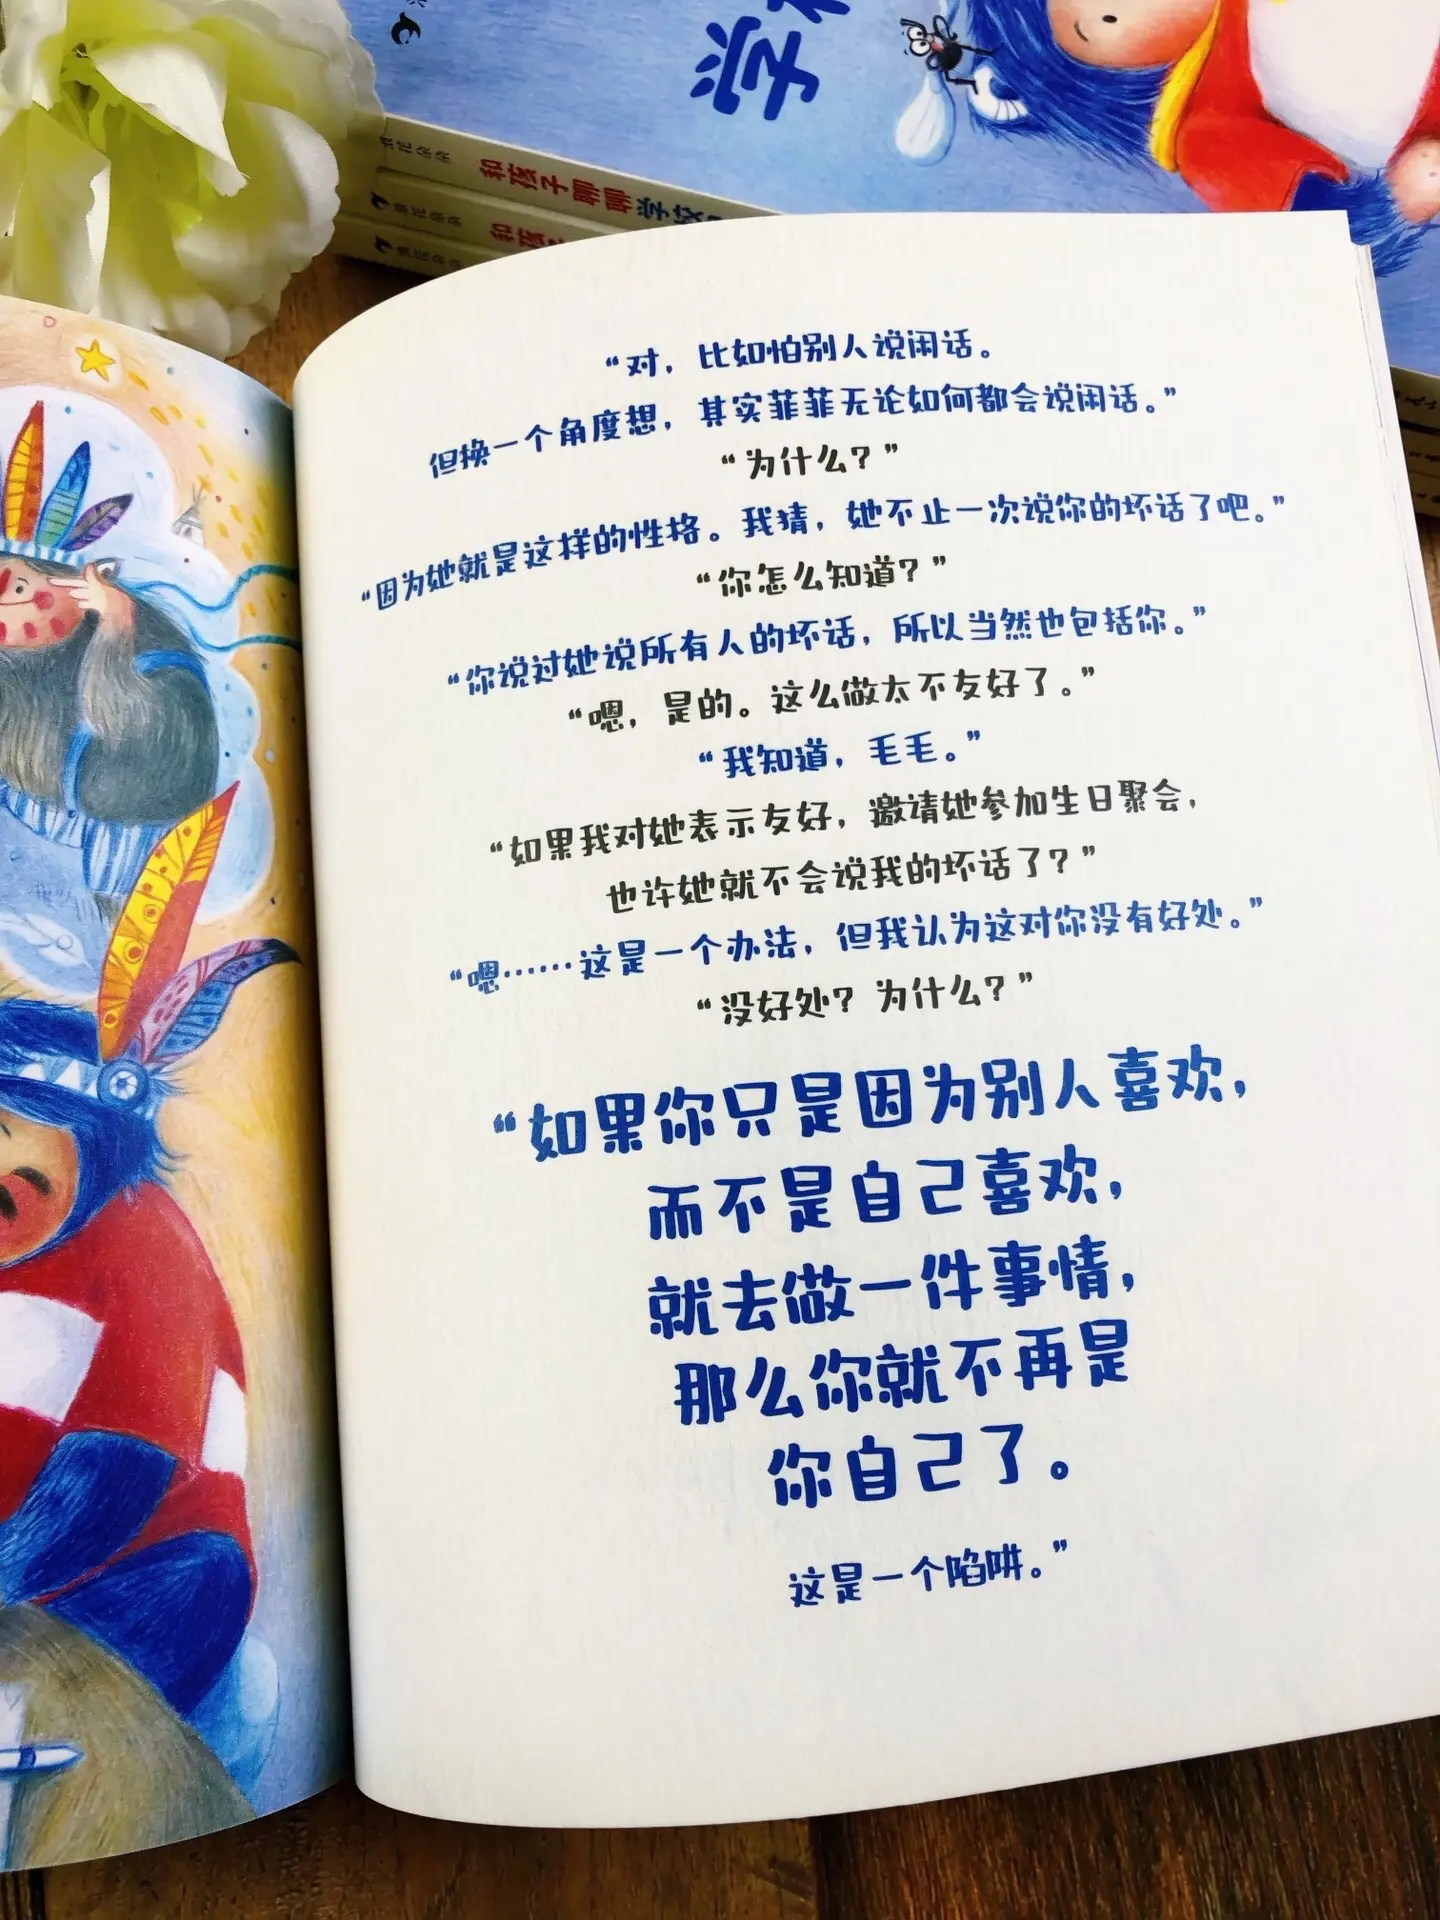 学校
浪花朵朵
和孩子聊聊学校
浪花朵朵
和孩
浪花朵朵
“对，比如怕别人说闲话。
但换一个角度想，其实菲菲无论如何都会说闲话。”
“为什么？”
“因为她就是这样的性格。我猜，她不止一次说你的坏话了吧。”
“你怎么知道？”
“你说过她说所有人的坏话，所以当然也包括你。”
“嗯，是的。这么做太不友好了。”
“我知道，毛毛。”
“如果我对她表示友好，邀请她参加生日聚会，
也许她就不会说我的坏话了？”
“嗯……这是一个办法，但我认为这对你没有好处。”
“没好处？为什么？”
“如果你只是因为别人喜欢，
而不是自己喜欢，
就去做一件事情，
那么你就不再是
你自己了。
这是一个陷阱。”